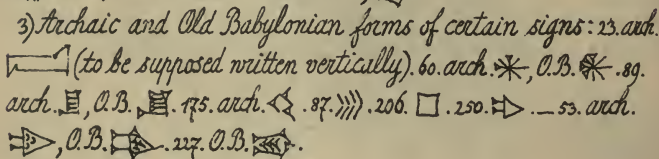 3) Archaic and Old Babylonian forms of certain signs: 23. arch.
(to be supposed written vertically). 60. arch. 𒀭, O.B. . 89.
arch. , O.B. . 175. arch. . 87. . 206. . 250. . — 53. arch.
, O.B. . 227. O.B. .